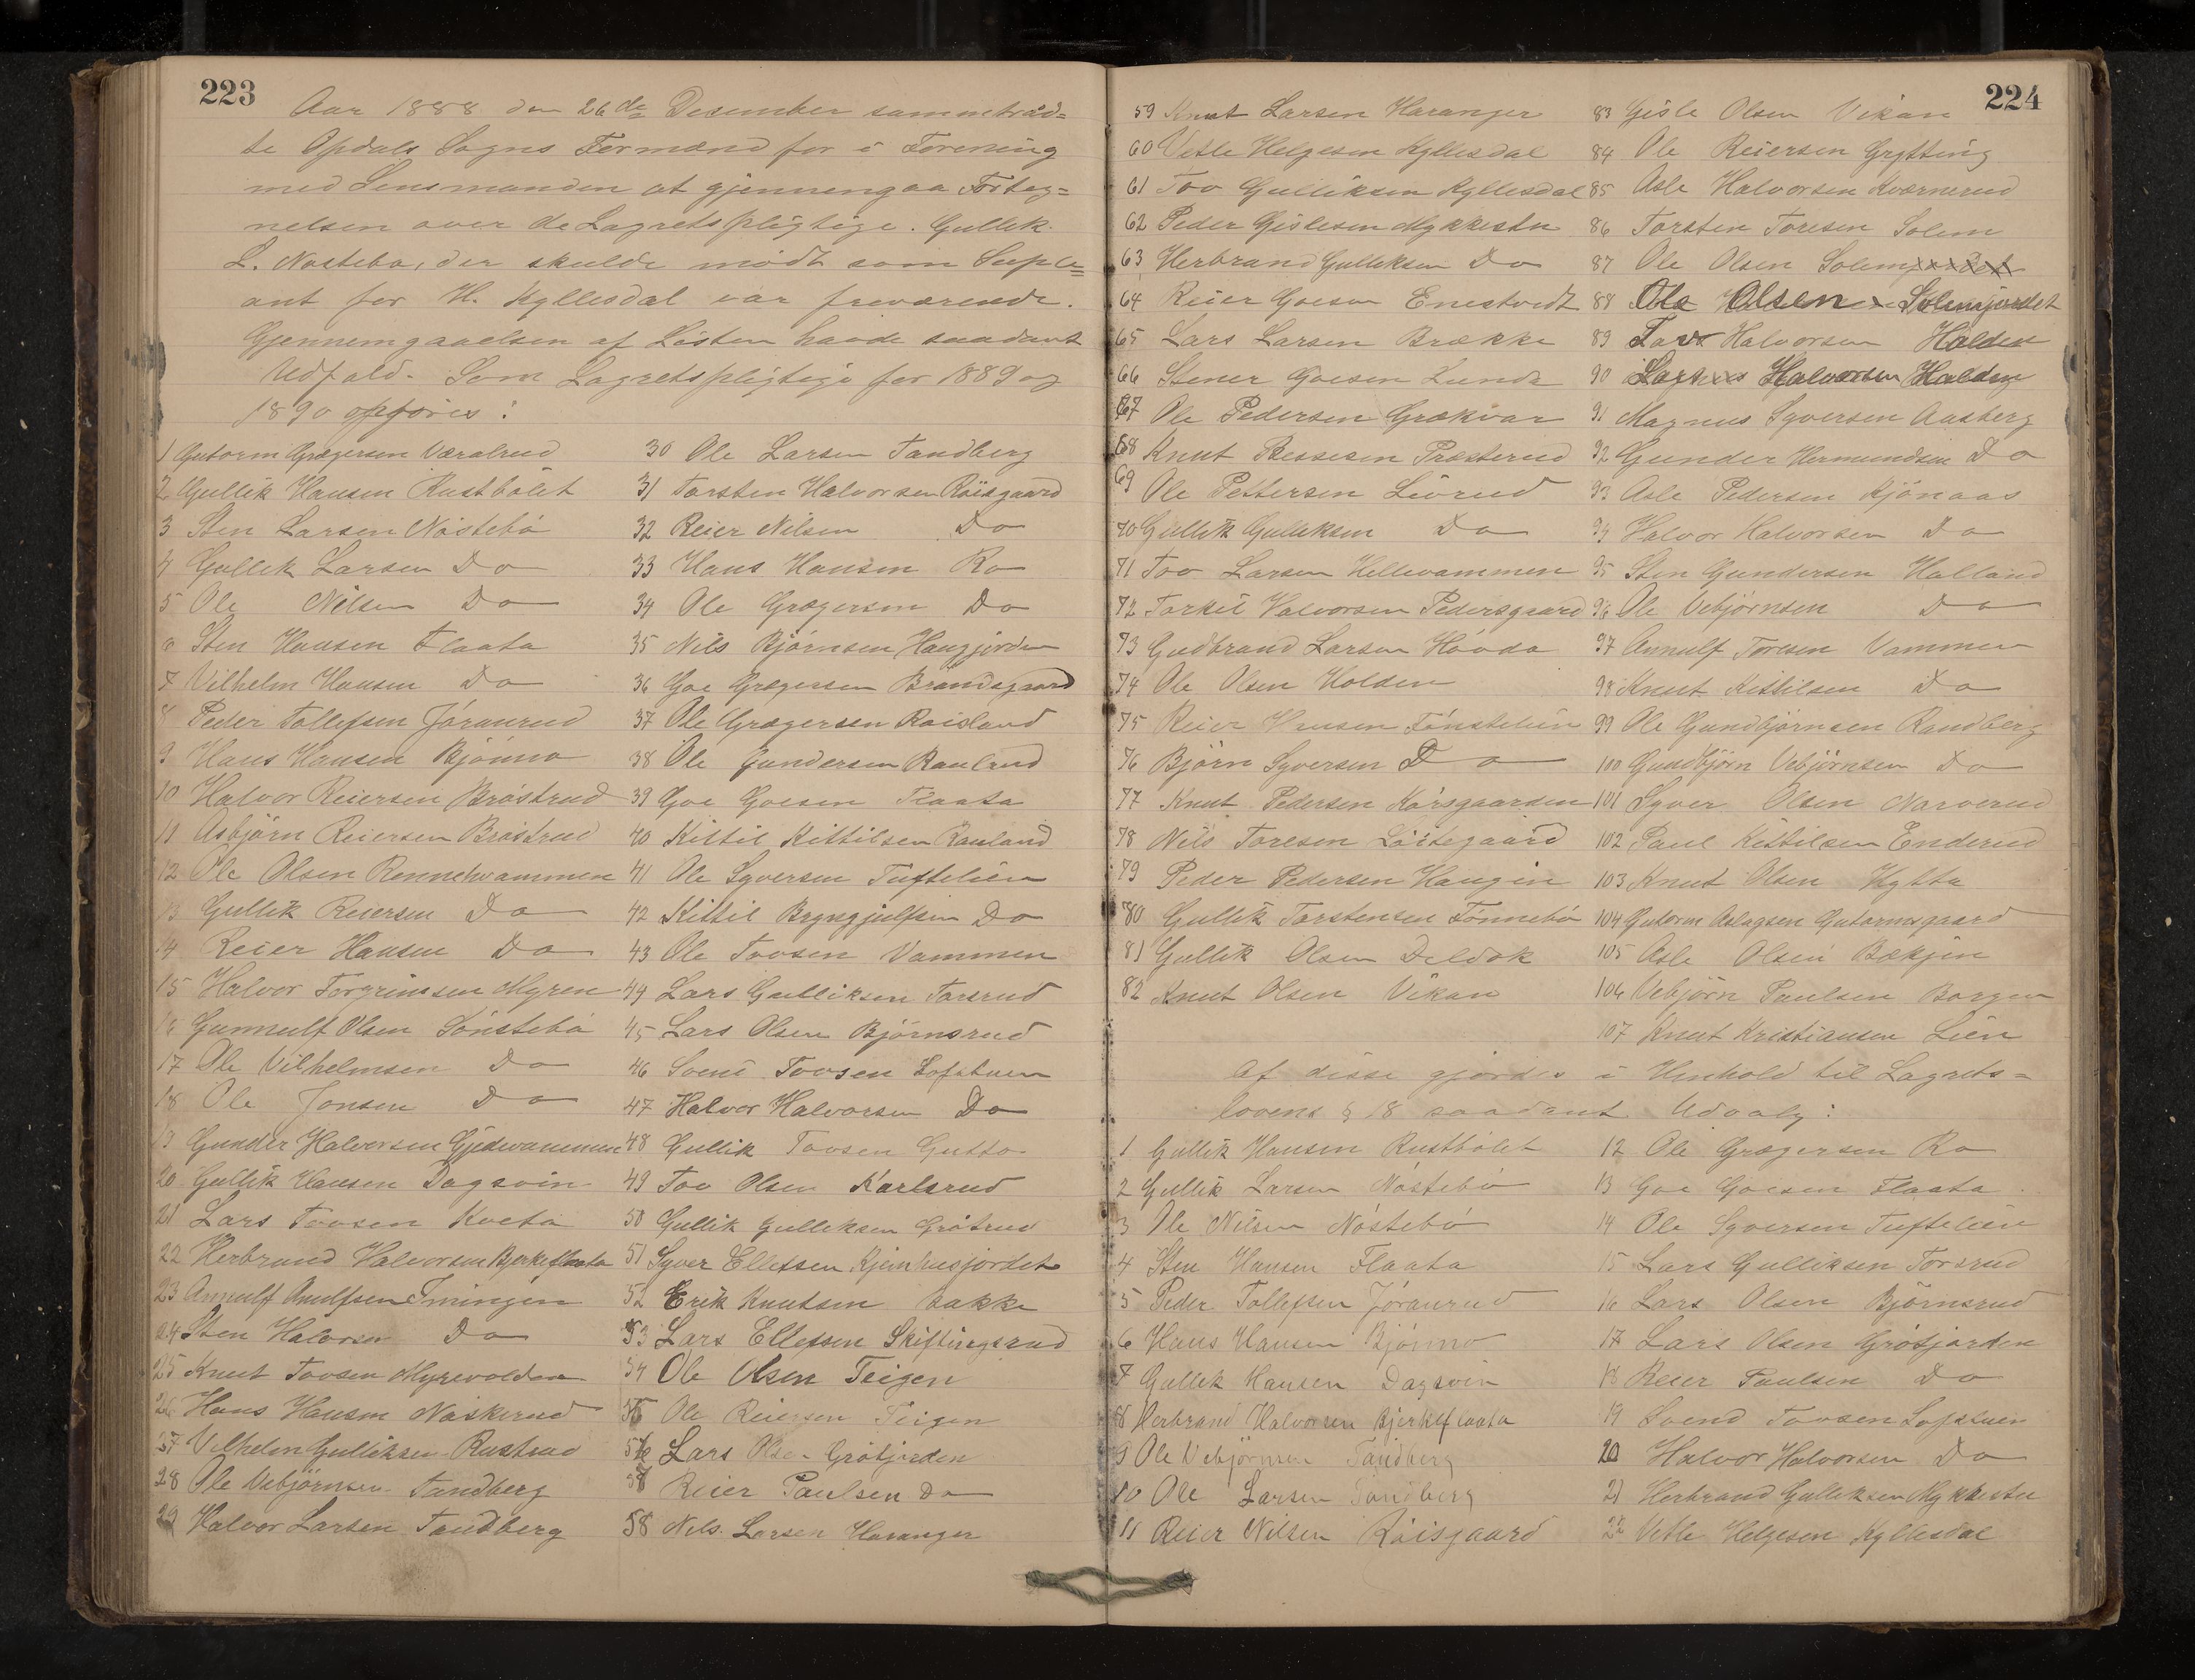 223
Aar 1888 den 26de Desember sammetraad=
te Opdals Sogns Formænd for i Forening
med Lensmanden at gjennengaa Forteg=
nelsen over de Lagretspligtige. Gullik
L. Nøstebø, der skulde mødt som Suple=
ant for H. Kyllesdal var fraværende.
Gjennemgaaelsen af Listen havde saadant
Udfald. Som Lagretspligtige for 1889 og
1890 opføres:
1 Gutorm Grægersen Væralrud
2 Gullik Hansen Rustbølet
3 Sten Larsen Nøstebø
4 Gullik Larsen Do
5 Ole Nilsen Do
6 Sten Hansen Flaata
7 Vilhelm Hansen Do
8 Peder Tollefsen Jøranrud
9 Hans Hansen Bjønno
10 Halvor Reiersen Brøstrud
11 Asbjørn Reiersen Brøstrud
12 Ole Olsen Rennehvammen
13 Gullik Reiersen Do
14 Reier Hansen Do
15 Halvor Torgrimsen Myren
16 Gunnulf Olsen Sønstebø
17 Ole Vilhelmsen Do
18 Ole Jonsen Do
19 Gunder Halvorsen Gjedevammen
20 Gullik Hansen Dagsvin
21 Lars Tovsen Kveta
22 Herbrand Halvorsen Bjerkeflaata
23 Annulf Anulfsen Imingen
24 Sten Halvorsen Do
25 Knut Tovsen Myrevolden
26 Hans Hansen Naskerud
27 Vilhelm Gulliksen Rustrud
28 Ole Vebjörnsen Tandberg
29 Halvor Larsen Tandberg
30 Ole Larsen Tandberg
31 Torsten Halvorsen Røisgaard
32 Reier Nilsen Do
33 Hans Hansen Ro
34 Ole Grægersen Do
35 Nils Bjørnsen Haugjorden
36 Goe Grægersen Brandsgaard
37 Ole Grægersen Roisland
38 Ole Gundersen Rauland
39 Goe Goesen Flaata
40 Kittil Kittilsen Rauland
41 Ole Syversen Tuftelien
42 Kittil Brynjulfsen Do
43 Ole Tovsen Vammen
44 Lars Gulliksen Torsrud
45 Lars Olsen Bjørnsrud
46 Svend Tovsen Lofstuen
47 Halvor Halvorsen Do
48 Gullik Tovsen Gutto
49 Tov Olsen Karlsrud
50 Gullik Gulliksen Grøtrud
51 Syver Ellefsen Kjemhusjordet
52 Erik Knutsen Bakke
53 Lars Ellefsen Skiftingsrud
54 Ole Olsen Teigen
55 Ole Reiersen Teigen
56 Lars Olsen Grøtjorden
57 Reier Paulsen Do
58 Nils Larsen Haranger
224
59 Knut Larsen Haranger
60 Vetle Helgesen Kyllesdal
61 Tov Gulliksen Kyllesdal
62 Peder Gislesen Mykkestu
63 Herbrand Gulliksen Do
64 Reier Goesen Enestvedt
65 Lars Larsen Brække
66 Stener Goesen Lunde
67 Ole Pedersen Grækvar
68 Knut Bessesen Præsterud
69 Ole Pettersen Livrud
70 Gullik Gulliksen Do
71 Tov Larsen Hellevammen
72 Torkil Halvorsen Pedersgaard
73 Gudbrand Larsen Høvda
74 Ole Olsen Holden
75 Reier Hansen Tønstelien
76 Bjørn Syversen Do
77 Knut Pedersen Korsgaarden
78 Nils Toresen Løitegaard
79 Peder Pedersen Haugen
80 Gullik Torstensen Tønnebø
81 Gullik Olsen Deldok
82 Knut Olsen Vikan
83 Gisle Olsen Vikan
84 Ole Reiersen Grytting
85 Asle Halvorsen Kværnerud
86 Torsten Toresen Solem
87 Ole Olsen Solemjordet
88 Ole Olsen Solemjordet
89 Tov Halvorsen Holden
90 Halvorsen Holden
91 Magnus Syversen Aasberg
92 Gunder Hermundsen Do
93 Asle Pedersen Kjønaas
94 Halvor Halvorsen Do
95 Sten Gundersen Halland
96 Ole Vebjørnsen Do
97 Annulf Toresen Vammen
98 Knut Kittilsen Do
99 Ole Gundbjørnsen Randberg
100 Gundbjørn Vebjørnsen Do
101 Syver Olsen Narverud
102 Paul Kittilsen Enderud
103 Knut Olsen Hytta
104 Gutorm Aslagsen Gutormsgaard
105 Asle Olsen Bækjen
106 Vebjørn Paulsen Borgen
107 Knut Kristiansen Lien
Af disse gjordes i Henhold til Lagrets=
lovens § 18 saadant Udvalg:
1 Gullik Hansen Rustbølet
2 Gullik Larsen Nøstebø
3 Ole Nilsen Nøstebø
4 Sten Hansen Flaata
5 Peder Tollefsen Jøranrud
6 Hans Hansen Bjønno
7 Gullik Hansen Dagsvin
8 Herbrand Halvorsen Bjerkeflaata
9 Ole Vebjørnsen Tandberg
10 Ole Larsen Tandberg
11 Reier Nilsen Røisgaard
12 Ole Grægersen Ro
13 Goe Goesen Flaata
14 Ole Syversen Tuftelien
15 Lars Gulliksen Torsrud
16 Lars Olsen Bjørnsrud
17 Lars Olsen Grøtjorden
18 Reier Paulsen Do
19 Svend Tovsen Lofstuen
20 Halvor Halvorsen Do
21 Herbrand Gulliksen Mykkestu
22 Vetle Helgesen Kyllesdal